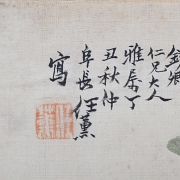 仁兄大人
雅属丁
丑秋仲
阜長任薰
寫